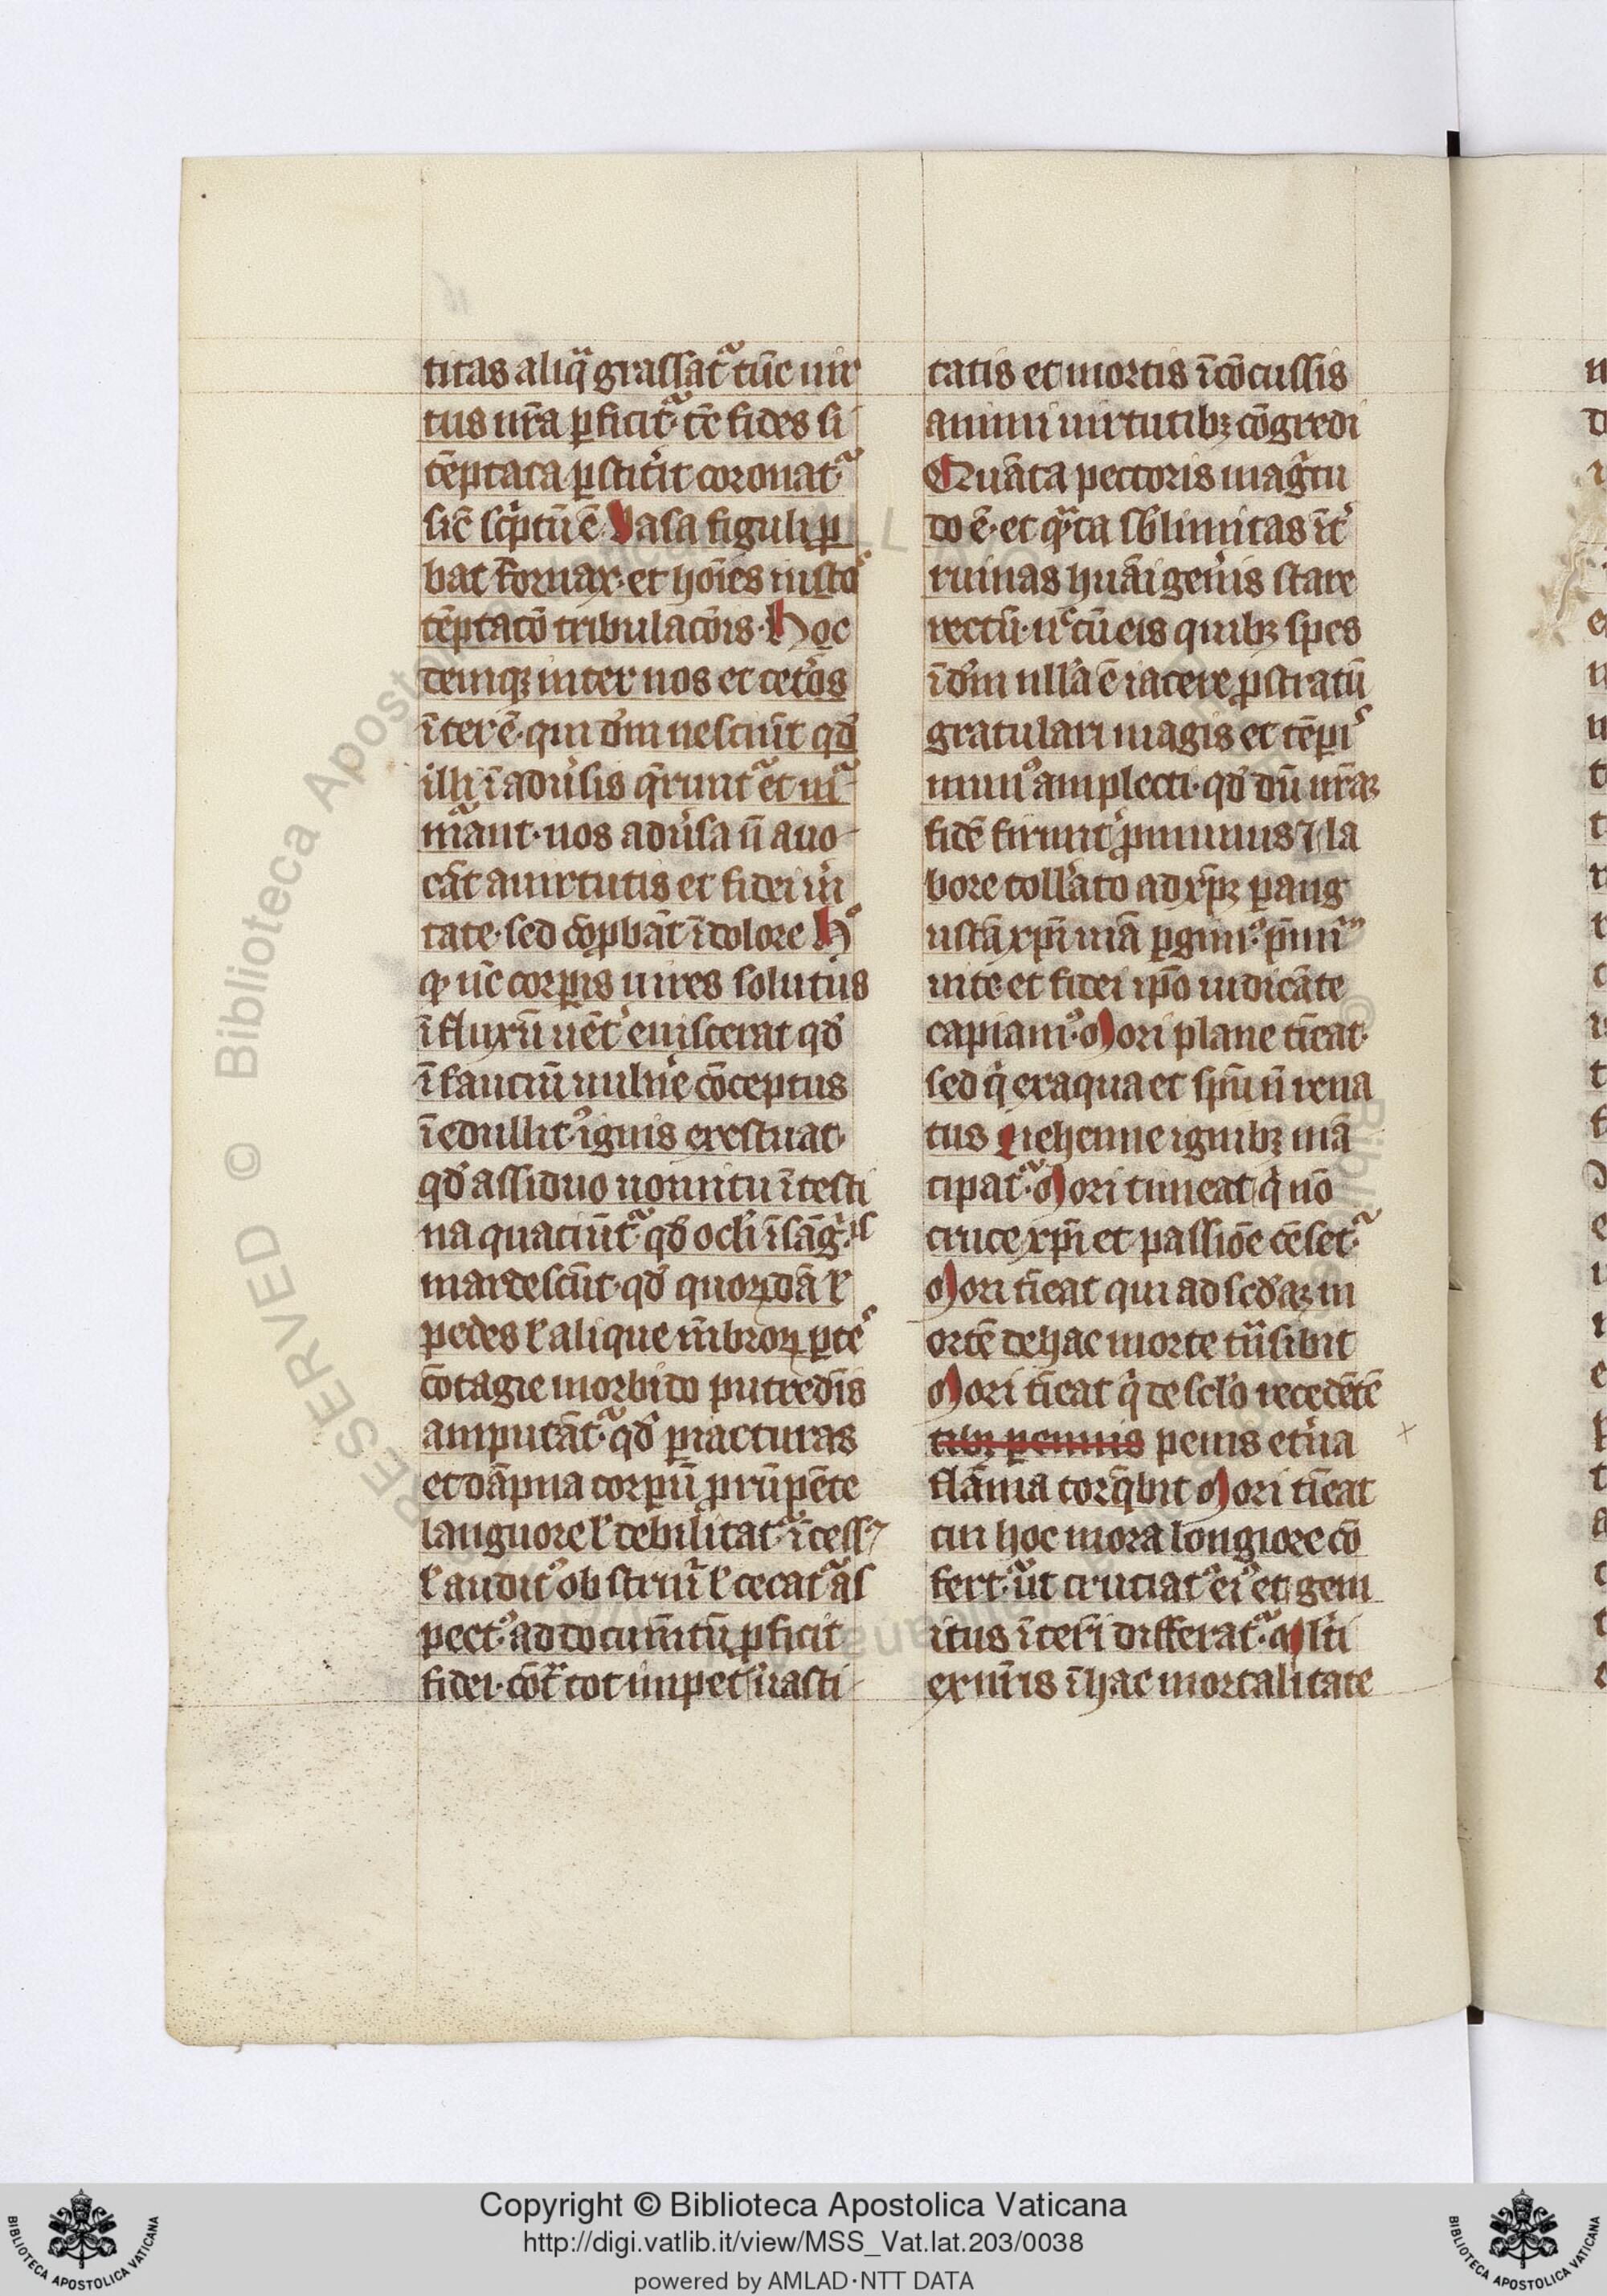 titas aliq̈ grassat̃ tūc uir
tus ur̄a ꝑficit̃· tc̄ fides si
tēptata ꝑstit̓it coronat̃
sic̄ scⁱptū ē Vasa figuli ꝓ
bat fornax· et hoīes iustoˢ
tēptatō tribulacōis· Hoc
deniqꝫ inter nos et cet̓os
īter ē· qui dm̄ nesciūt qd̓
illi ī adu̓sis q̄runt̃ et m̃
m̃ant· nos adu̓sa n̄ auo
cāt a uirtutis et fidei u̓i
tate· sed cōꝓbāt ī dolore H°
ꝙ nc̄ corꝑis uires solutus
ī fluxū uēt̓ euiscerat qd̓
ī fauciū uuln̓e cōceptus
ī edullit᾿ ignis exestuat·
qd̓ assiduo uomitu ītesti
na quaciūt̃· qd̓ oc̓li īsāgⁱs
mardescūt· qd̓ quorūdā ł
pedes ł alique mēbroꝝ ꝑteˢ
cōtagie morbido putredīs
amputāt̃· qd̓ ꝑ iacturas
et dāpna corꝑū ꝓrūpēte
languore ł debilitat̃ īcess⁊
ł audit᾿ obstruit̃ ł cecat̃ as
pect᾿· ad documītū ꝓficit
fidei· cōt̃ tot impet᾿ uasti
tatis et mortis īcōcussis
animi uirtutibꝫ cōgredi
Quāta pectoris magⁱtu
do ē· et q̃ta sb̓limitas īt̓
ruinas huāi gen̓is stare
rectū· n̄ cū eis quibꝫ spes
ī dm̄ null̓a ē iacere ꝓstratū
gratulari magis et tēꝑiˢ
mun᾿ amplecti· qd̓ dū nr̄aꝫ
fidē firmit̓ ꝓmimus ⁊ la
bore toll̓ato ad xp̄ꝫ ꝑ ang
ustā xp̄i uiā ꝑgim᾿· p̄miū
uite et fidei ip̄o iudicāte
capiam᾿· Mori plane tīeat·
sed qⁱ ex aqua et sp̄u n̄ rena
tus gehenne ignibꝫ mā
cipat̃· Mori timeat qⁱ nō
cruce xp̄i et passiōe cēset̃·
Mori tīeat qui ad scd̓aꝫ m
ortē de hac morte tn̄sibit
Mori tīeat qⁱ de sc̓lo recedētē
tibꝫ pennis penis et̓na
flāma torq̄bit Mori tīeat
cui hoc mora longiore cō
fert̃· ut cruciat᾿ ei᾿ et gem
itus īteri differat̃· M̓lti
ex nr̄is ī hac mortalitate
Copyright © Biblioteca Apostolica Vaticana
http://digi.vatlib.it/view/MSS_Vat.lat.203/0038
powered by AMLAD·NTT DATA